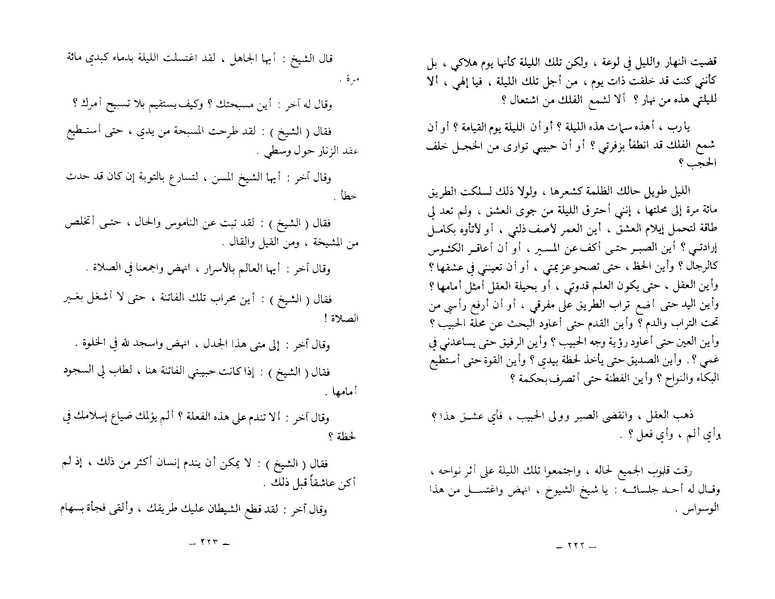 قضيت النهار والليل في لوعة ، ولكن تلك الليلة كأنها يوم هلاكي ، بل
كأنني كنت قد خلقت ذات يوم ، من أجل تلك الليلة ، فيا إلهي ، ألا
لليلتي هذه من نهار ؟ ألا لشمع الفلك من اشتعال ؟
يارب ، أهذه سمات هذه الليلة ؟ أو أن الليلة يوم القيامة ؟ أو أن
شمع الفلك قد انطفأ بزفرتي ؟ أو أن حبيبي توارى من الخجل خلف
الحجب ؟
الليل طويل حالك الظلمة كشعرها ، ولولا ذلك لسلكت الطريق
مائة مرة إلى محلتها ، إنني أحترق الليلة من جوى العشق ، ولم تعد لي
طاقة لتحمل إيلام العشق ، أين العمر لأصف ذلتي ، أو لأتأوه بكامل
إرادتي ؟ أين الصبر حتى أكف عن المسير ، أو أن أعاقر الكئوس
كالرجال ؟ وأين الحظ ، حتى تصحو عزيمتي ، أو أن تعينني في عشقها ؟
وأين العقل ، حتى يكون العلم قدوتي ، أو بحيلة العقل أمثل أمامها ؟
وأين اليد حتى أضع تراب الطريق على مفرقي ، أو أن أرفع رأسي من
تحت التراب والدم ؟ وأين القدم حتى أعاود البحث عن محلة الحبيب ؟
وأين العين حتى أعاود رؤية وجه الحبيب ؟ وأين الرفيق حتى يساعدني في
غمي ؟ . وأين الصديق حتى يأخذ لحظة بيدي ؟ وأين القوة حتى أستطيع
البكاء والنواح ؟ وأين الفطنة حتى أتصرف بحكمة ؟
ذهب العقل ، وانقضى الصبر وولى الحبيب ، فأي عشق هذا ؟
وأي ألم ، وأي فعل ؟ .
رقت قلوب الجميع لحاله ، واجتمعوا تلك الليلة على أثر نواحه ،
وقال له أحد جلسائه : يا شيخ الشيوخ ، انهض واغتسل من هذا
الوسواس .
— ٢٢٢ —
قال الشيخ : أيها الجاهل ، لقد اغتسلت الليلة بدماء كبدي مائة
مرة .
وقال له آخر : أين مسبحتك ؟ وكيف يستقيم بلا تسبيح أمرك ؟
فقال ( الشيخ ) : لقد طرحت المسبحة من يدي ، حتى أستطيع
عقد الزنار حول وسطي .
وقال آخر : أيها الشيخ المسن ، لتسارع بالتوبة إن كان قد حدث
خطأ .
فقال ( الشيخ ) : لقد تبت عن الناموس والحال ، حتى أتخلص
من المشيخة ، ومن القيل والقال .
وقال آخر : أيها العالم بالأسرار ، انهض واجمعنا في الصلاة .
فقال ( الشيخ ) : أين محراب تلك الفاتنة ، حتى لا أشغل بغير
الصلاة !
وقال آخر : إلى متى هذا الجدل ، انهض واسجد لله في الخلوة .
فقال ( الشيخ ) : إذا كانت حبيبتي الفاتنة هنا ، لطاب لي السجود
أمامها .
وقال آخر : ألا تندم على هذه الفعلة ؟ ألم يؤلمك ضياع إسلامك في
لحظة ؟
فقال ( الشيخ ) : لا يمكن أن يندم إنسان أكثر من ذلك ، إذ لم
أكن عاشقاً قبل ذلك .
وقال آخر : لقد قطع الشيطان عليك طريقك ، وألقى فجأة بسهام
— ٢٢٣ —